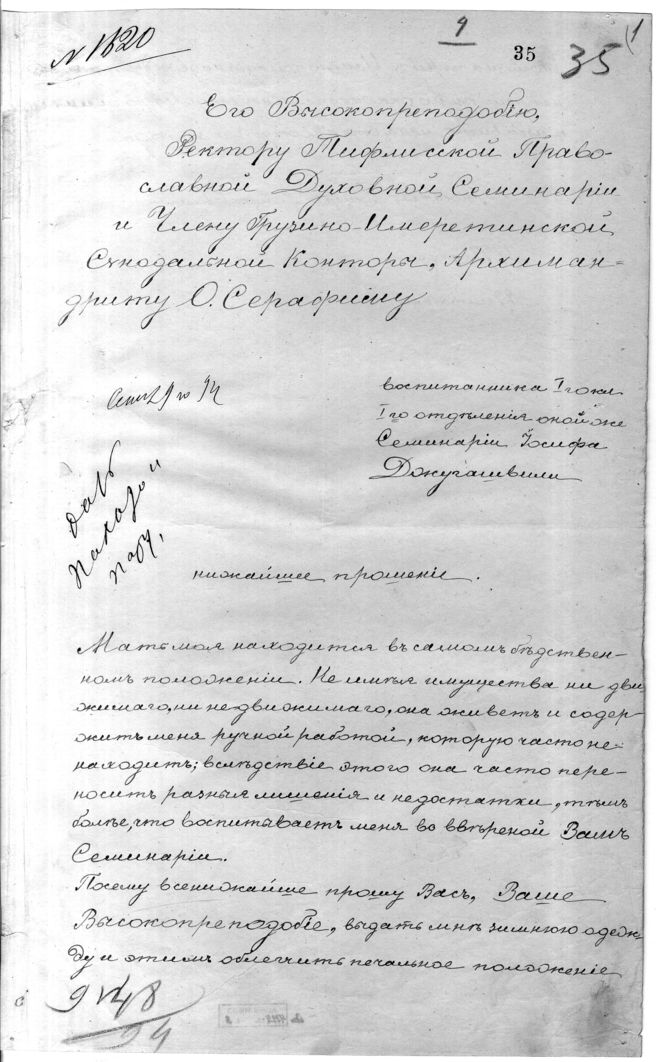 N 1820
9
35 35
1
Его Высокопреподобію,
Ректору Тифлисской Право-
славной Духовной Семинаріи
и Члену Грузино-Имеретинской
Сѵнодальной Конторы, Архиман-
дриту О. Серафиму
воспитанника I го кл.
I го отдѣленія оной же
Семинаріи Іосифа
Джугашвили
нижайшее прошеніе.
Мать моя находится въ самомъ бѣдствен-
номъ положеніи. Не имѣя имущества ни дви
жимаго, ни недвижимаго, она живетъ и содер-
житъ меня ручной работой, которую часто не-
находитъ; вслѣдствіе этого она часто пере-
носитъ разныя лишенія и недостатки, тѣмъ
болѣе, что воспитываетъ меня во ввѣреной Вамъ
Семинаріи.
Посему всенижайше прошу Васъ, Ваше
Высокопреподобіе, выдать мнѣ зимнюю одеж-
ду и этимъ облегчить печальное положеніе
94